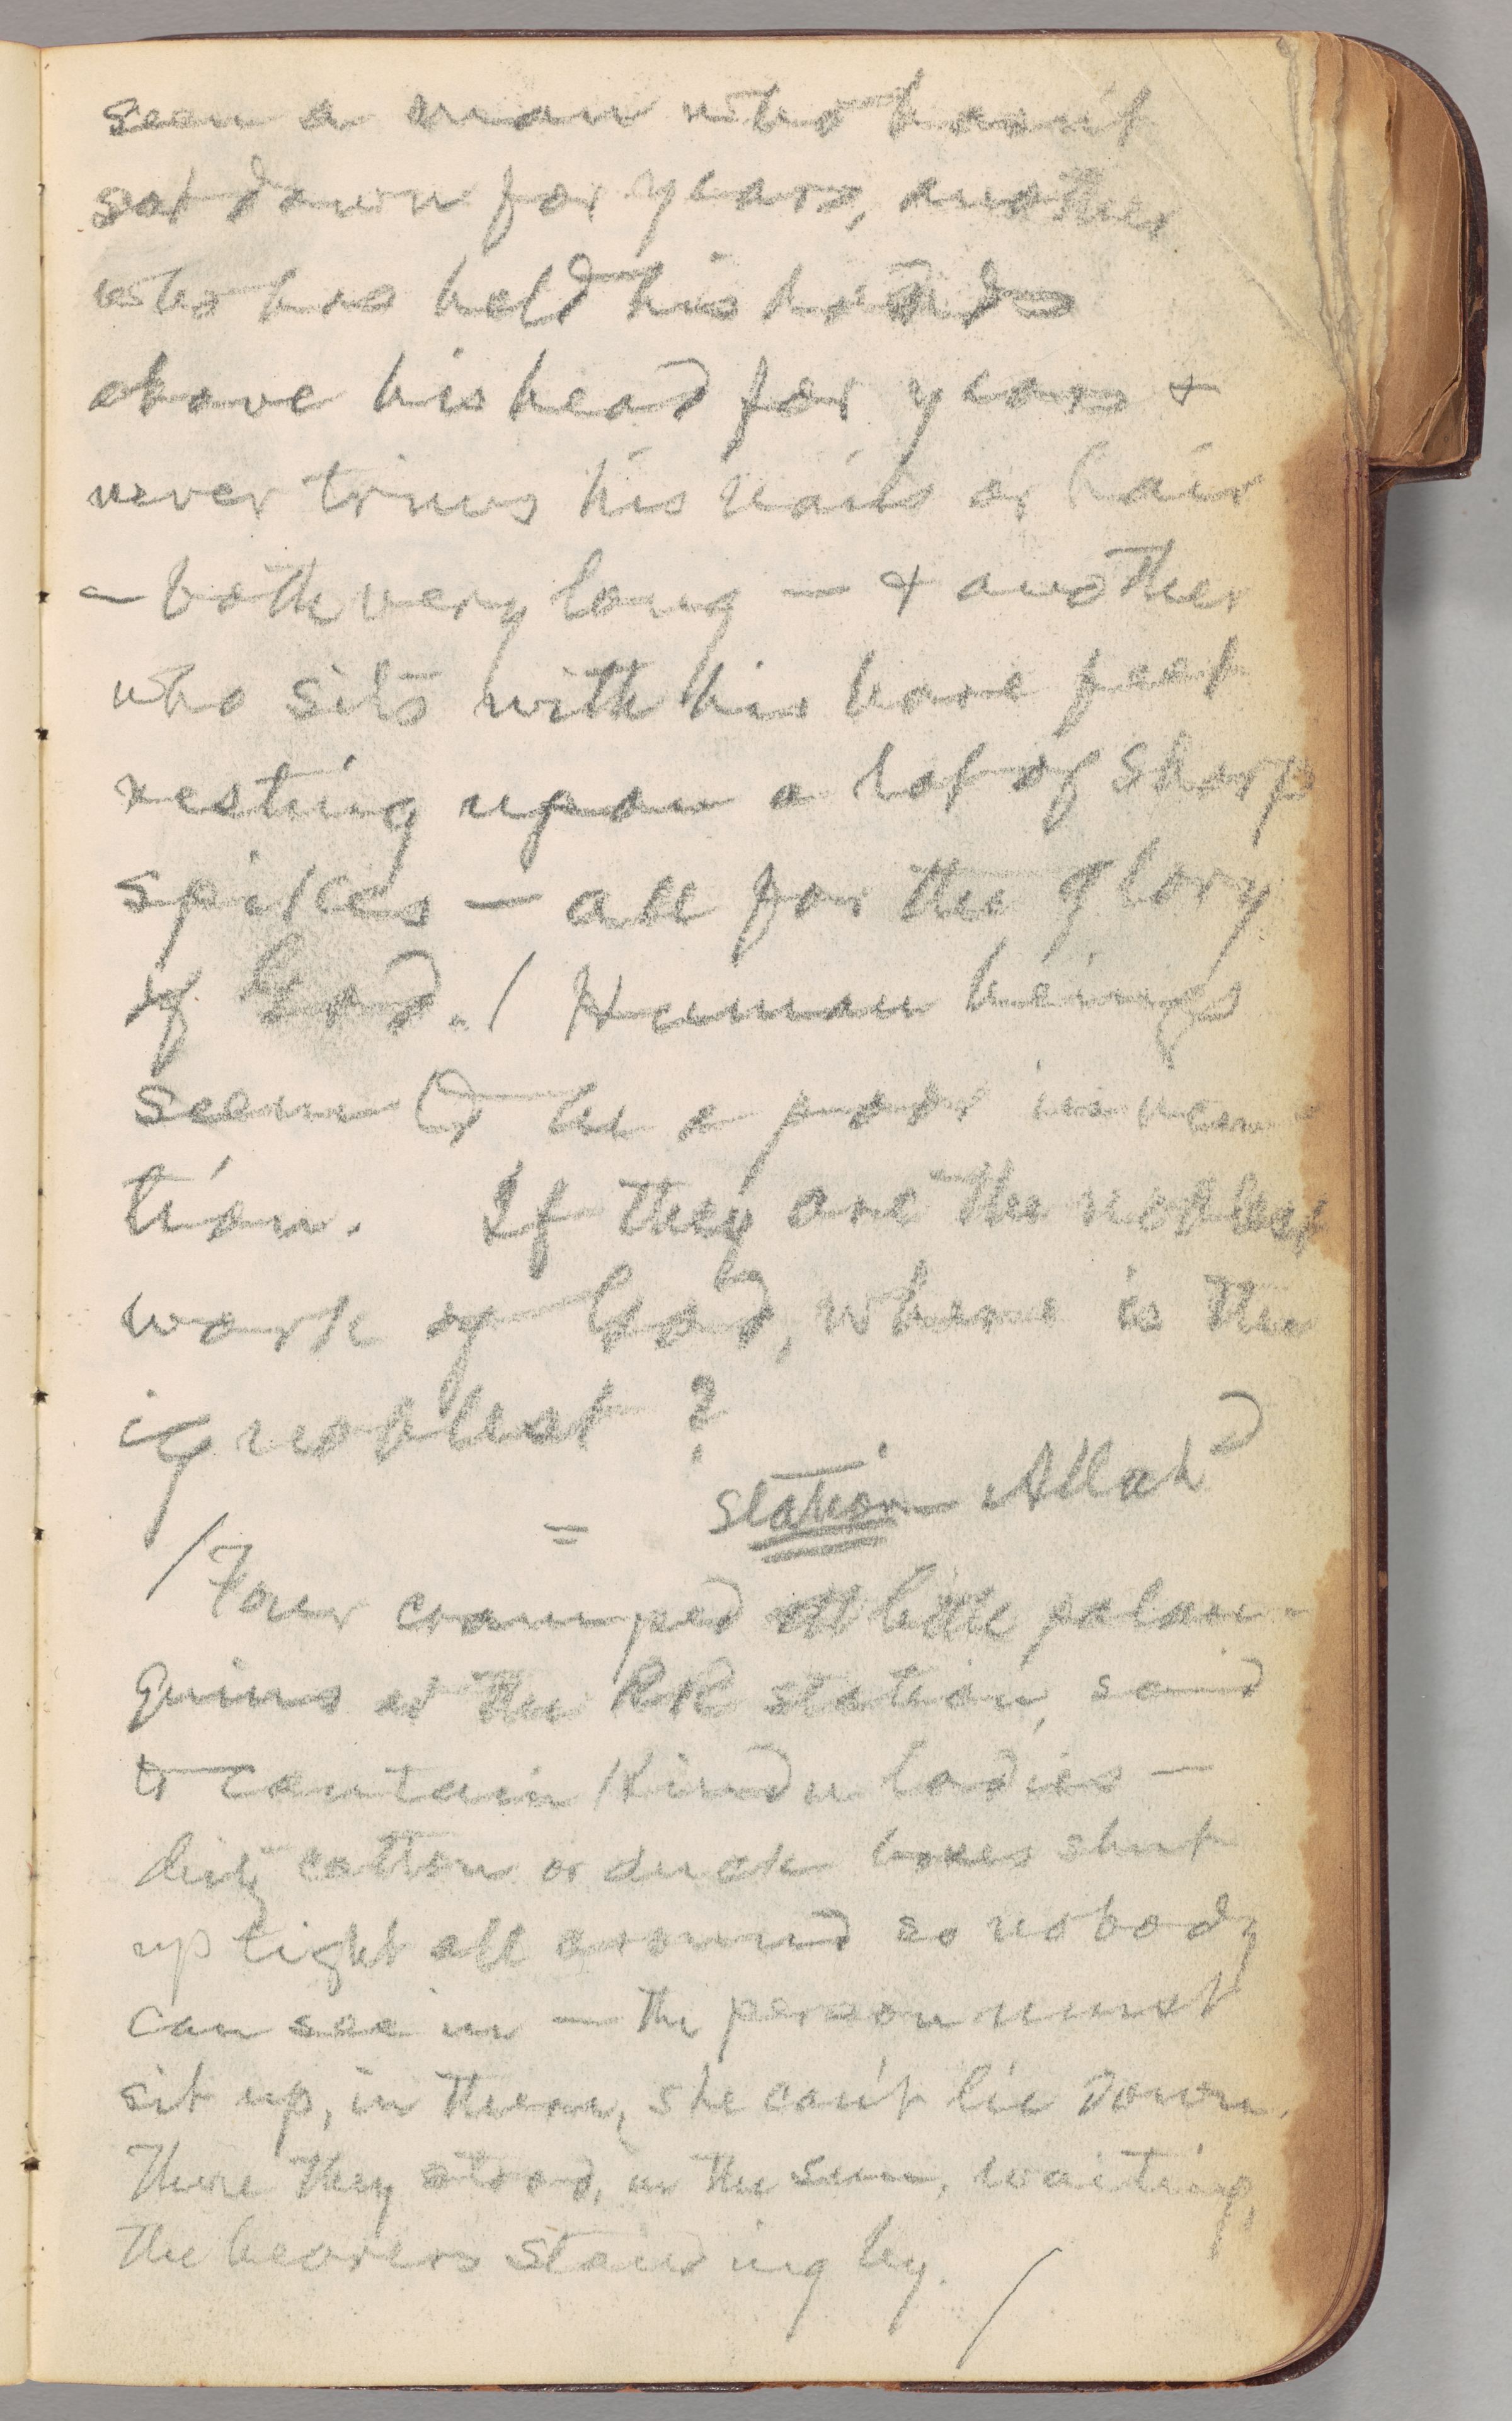 seen a man who hasn't
sat down for years, another
who has held his hands
above his head for years &
never trims his nails or hair
— both very long — & another
who sits with his bare feet
resting upon a lot of sharp
spikes — all for the glory
of God. / Human beings
seem to be a poor inven-
tion. If they are the noblest
work of God, where is the
ignoblest?
= Station Allahd
/ Four cramped little palan-
quins at the RR station, said
to contain Hindu ladies —
dirty cotton or duck boxes shut
up tight all around so nobody
can see in — the person must
sit up, in them, she can't lie down.
There they stood, in the sun, waiting,
the bearers standing by. /